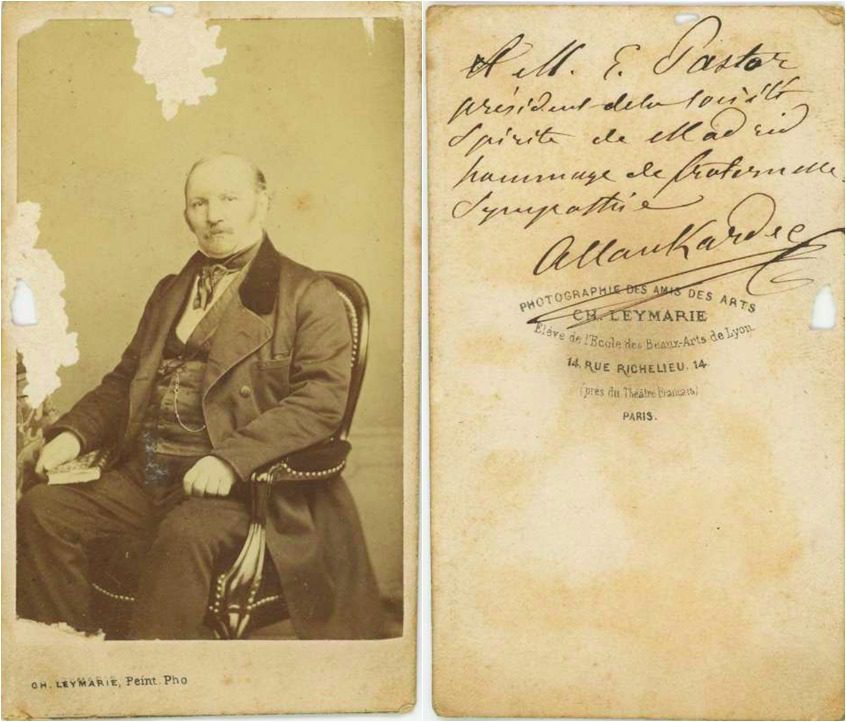 CH. LEYMARIE, Peint. Pho
A M. E. Pastor
président de la société
Spirite de Madrid
hommage de fraternelle
Sympathie
Allan Kardec
PHOTOGRAPHIE DES AMIS DES ARTS
CH. LEYMARIE
Elève de l'Ecole des Beaux-Arts de Lyon.
14. RUE RICHELIEU. 14.
(près du Théâtre Français)
PARIS.